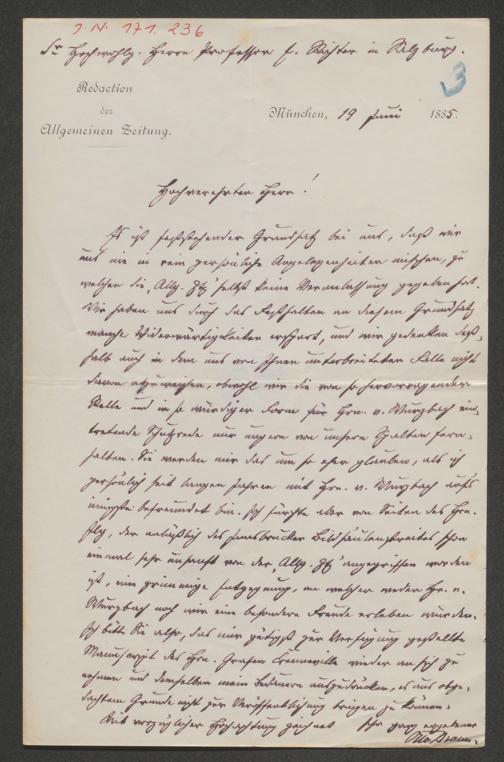 J. N. 171.236
Sr Hochwohlg. Herrn Professor E. Richter in Salzburg.
3
Redaction
der
Allgemeinen Zeitung.
München, 19 Juni 1885.
Hochverehrter Herr!
Es ist feststehender Grundsatz bei uns, daß wir
uns nie in rein persönliche Angelegenheiten mischen, zu
welchen die „Allg. Ztg“ selbst keine Veranlassung gegeben hat.
Wir haben uns durch das Festhalten an diesem Grundsatz
manche Widerwärtigkeiten erspart, und wir gedenken deß-
halb auch in dem uns von Ihnen unterbreiteten Falle nicht
davon abzuweichen, obwohl wir die von so hervorragender
Stelle und in so würdiger Form für Hrn. v. Wurzbach ein-
tretende Schutzrede nur ungern von unseren Spalten fern-
halten. Sie werden mir das um so eher glauben, als ich
persönlich seit langen Jahren mit Hrn. v. Wurzbach aufs
innigste befreundet bin. Ich fürchte aber von Seiten des Hrn.
Ilg, der anläßlich des Innsbrucker Bildsäulenstreites schon
einmal sehr unsanft von der „Allg. Ztg“ angegriffen worden
ist, eine grimmige Entgegnung, an welcher weder Hr. v.
Wurzbach noch wir eine besondere Freude erleben würden.
Ich bitte Sie also, das mir gütigst zur Verfügung gestellte
Manuscript des Hrn. Grafen Crenneville wieder an sich zu
nehmen und demselben mein Bedauern auszudrücken, es aus obge-
dachtem Grunde nicht zur Veröffentlichung bringen zu können.
Mit vorzüglicher Hochachtung zeichnet Ihr ganz ergebener
Otto Braun.